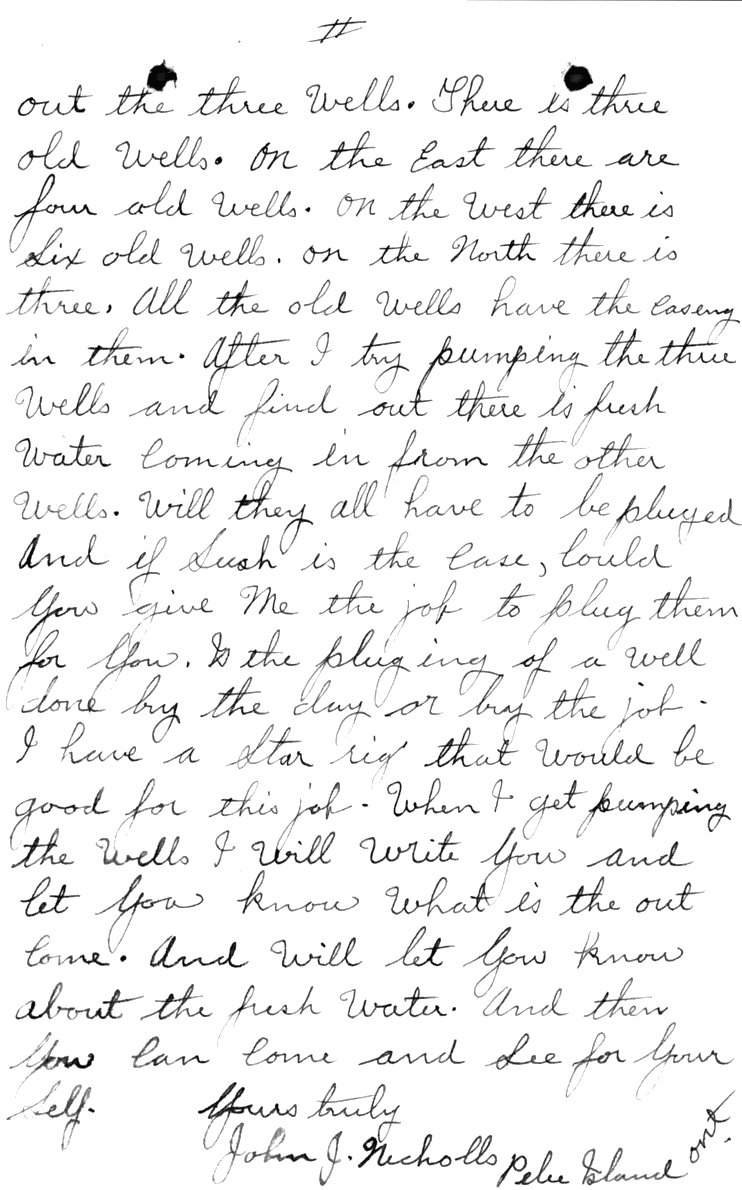 II
out the three Wells. There is three
old Wells. On the East there are
four old Wells. On the West there is
Six old Wells. On the North there is
three. All the old Wells have the Caseing
in them. After I try pumping the three
Wells and find out there is fresh
Water Coming in from the other
Wells. Will they all have to be pluged
And if Sush is the Case, Could
You give Me the job to plug them
for You. Is the pluging of a Well
done by the day or by the job.
I have a Star rig that Would be
good for this job. When I get pumping
the Wells I Will Write You and
let You know What is the out
Come. And Will let You know
about the fresh Water. And then
You Can Come and See for Your
Self. Yours truly
John J. Nicholls Pelee Island Ont.